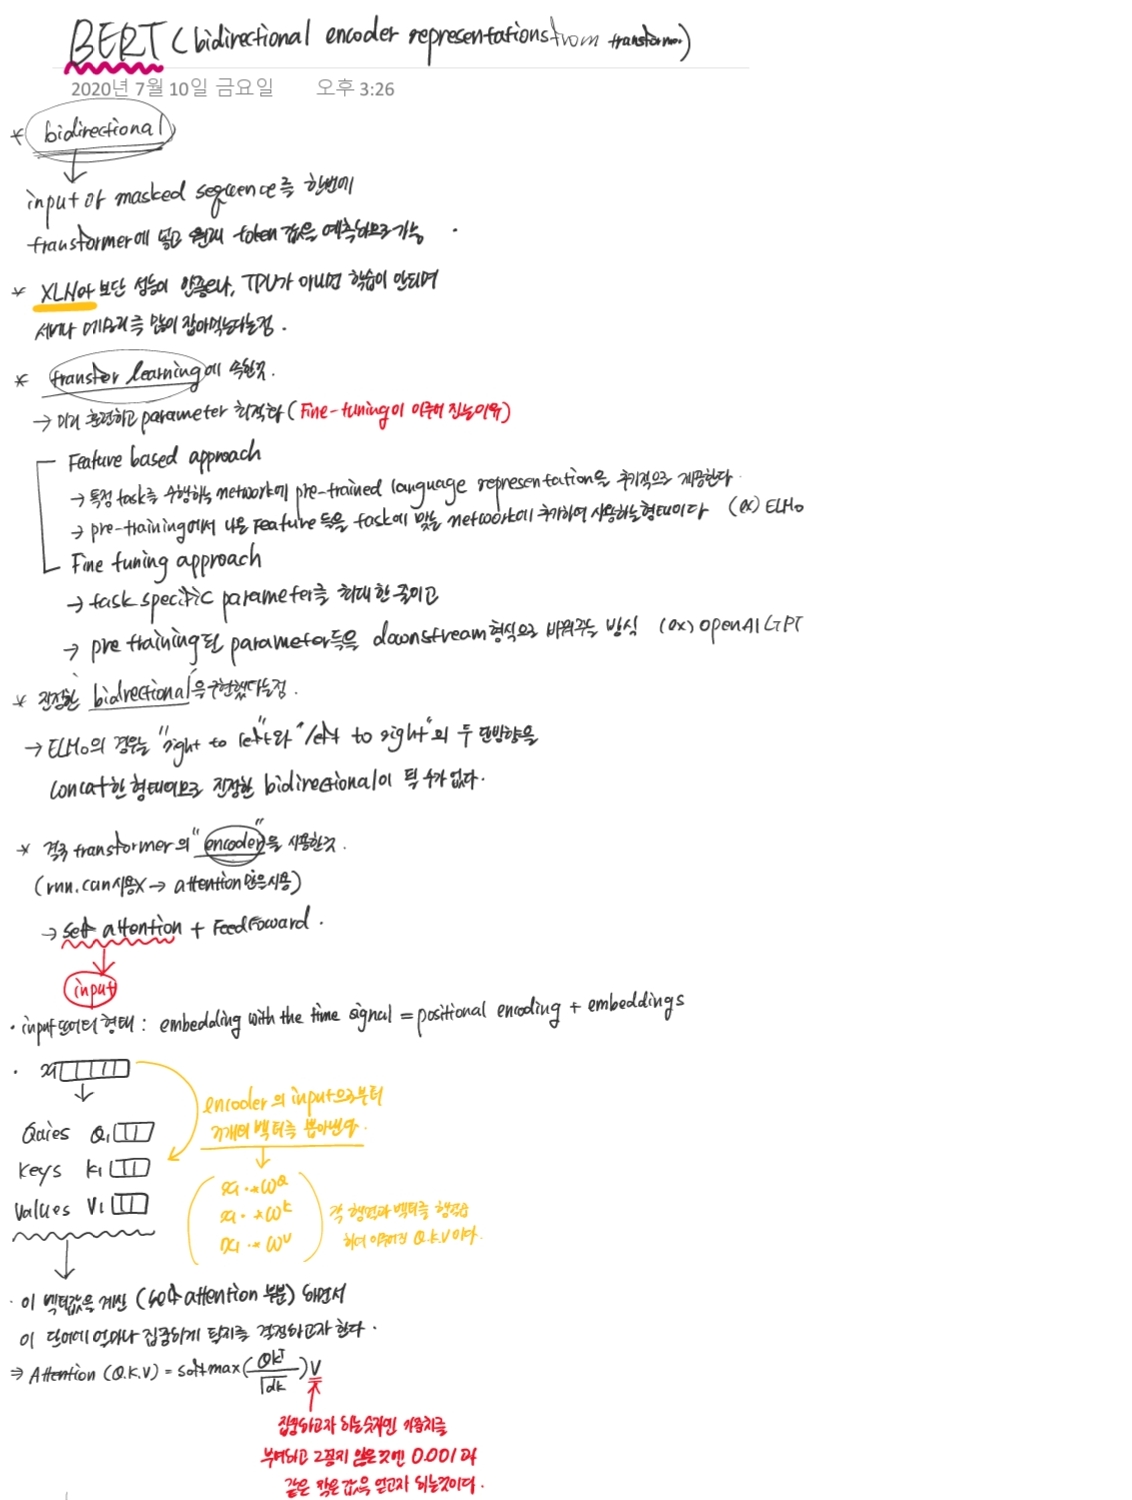 BERT (bidirectional encoder representations from transformer)
2020년 7월 10일 금요일 오후 3:26
* bidirectional
input or masked sequence를 한번에
transformer에 넣고 원래 token 값을 예측하므로 가능.
* XLNet 보단 성능이 안좋으나, TPU가 아니면 학습이 안되며
메모리를 많이 잡아먹는다는점.
* transfer learning에 속한것.
→ 미리 훈련하고 parameter 최적화 (Fine-tuning이 이루어 진는이유)
Feature based approach
→ 특정 task를 수행하는 network에 pre-trained language representation을 추가적으로 제공한다.
→ pre-training에서 나온 Feature 등을 task에 맞는 network에 추가하여 사용하는형태이다 (ex) ELMo
Fine tuning approach
→ task specific parameter를 최대한 줄이고
→ pre training된 parameter등을 downstream형식으로 바꿔주는 방식 (ex) OpenAI GPT
* 진정한 bidrectional을 구현했다는점.
→ ELMo의 경우는 "right to left"와 "left to right"의 두 단방향을
concat한 형태이므로 진정한 bidirectional이 될 수가 없다.
* 결국 transformer의 "encoder"을 사용한것.
(rnn, cnn사용X → attention만을 사용)
→ self attention + Feed Foward.
input
· input 데이터 형태 : embedding with the time signal = positional encoding + embeddings
· x1
encoder의 input으로부터
3개의 벡터를 뽑아낸다.
Quries Q1
Keys K1
Values V1
x1 · * W^Q
x1 · * W^K
x1 · * W^V
각 행렬과 벡터를 행렬곱
하여 이루어진 Q.K.V이다.
· 이 벡터값을 계산 (self attention 부분) 하면서
이 단어에 얼마나 집중하게 될지를 결정하고자 한다.
⇒ Attention (Q.K.V) = softmax(QK^T/√dk)V
집중하고자 하는 가중치를
부여하고 그렇지 않은것엔 0.001과
같은 작은 값을 얻고자 하는것이다.